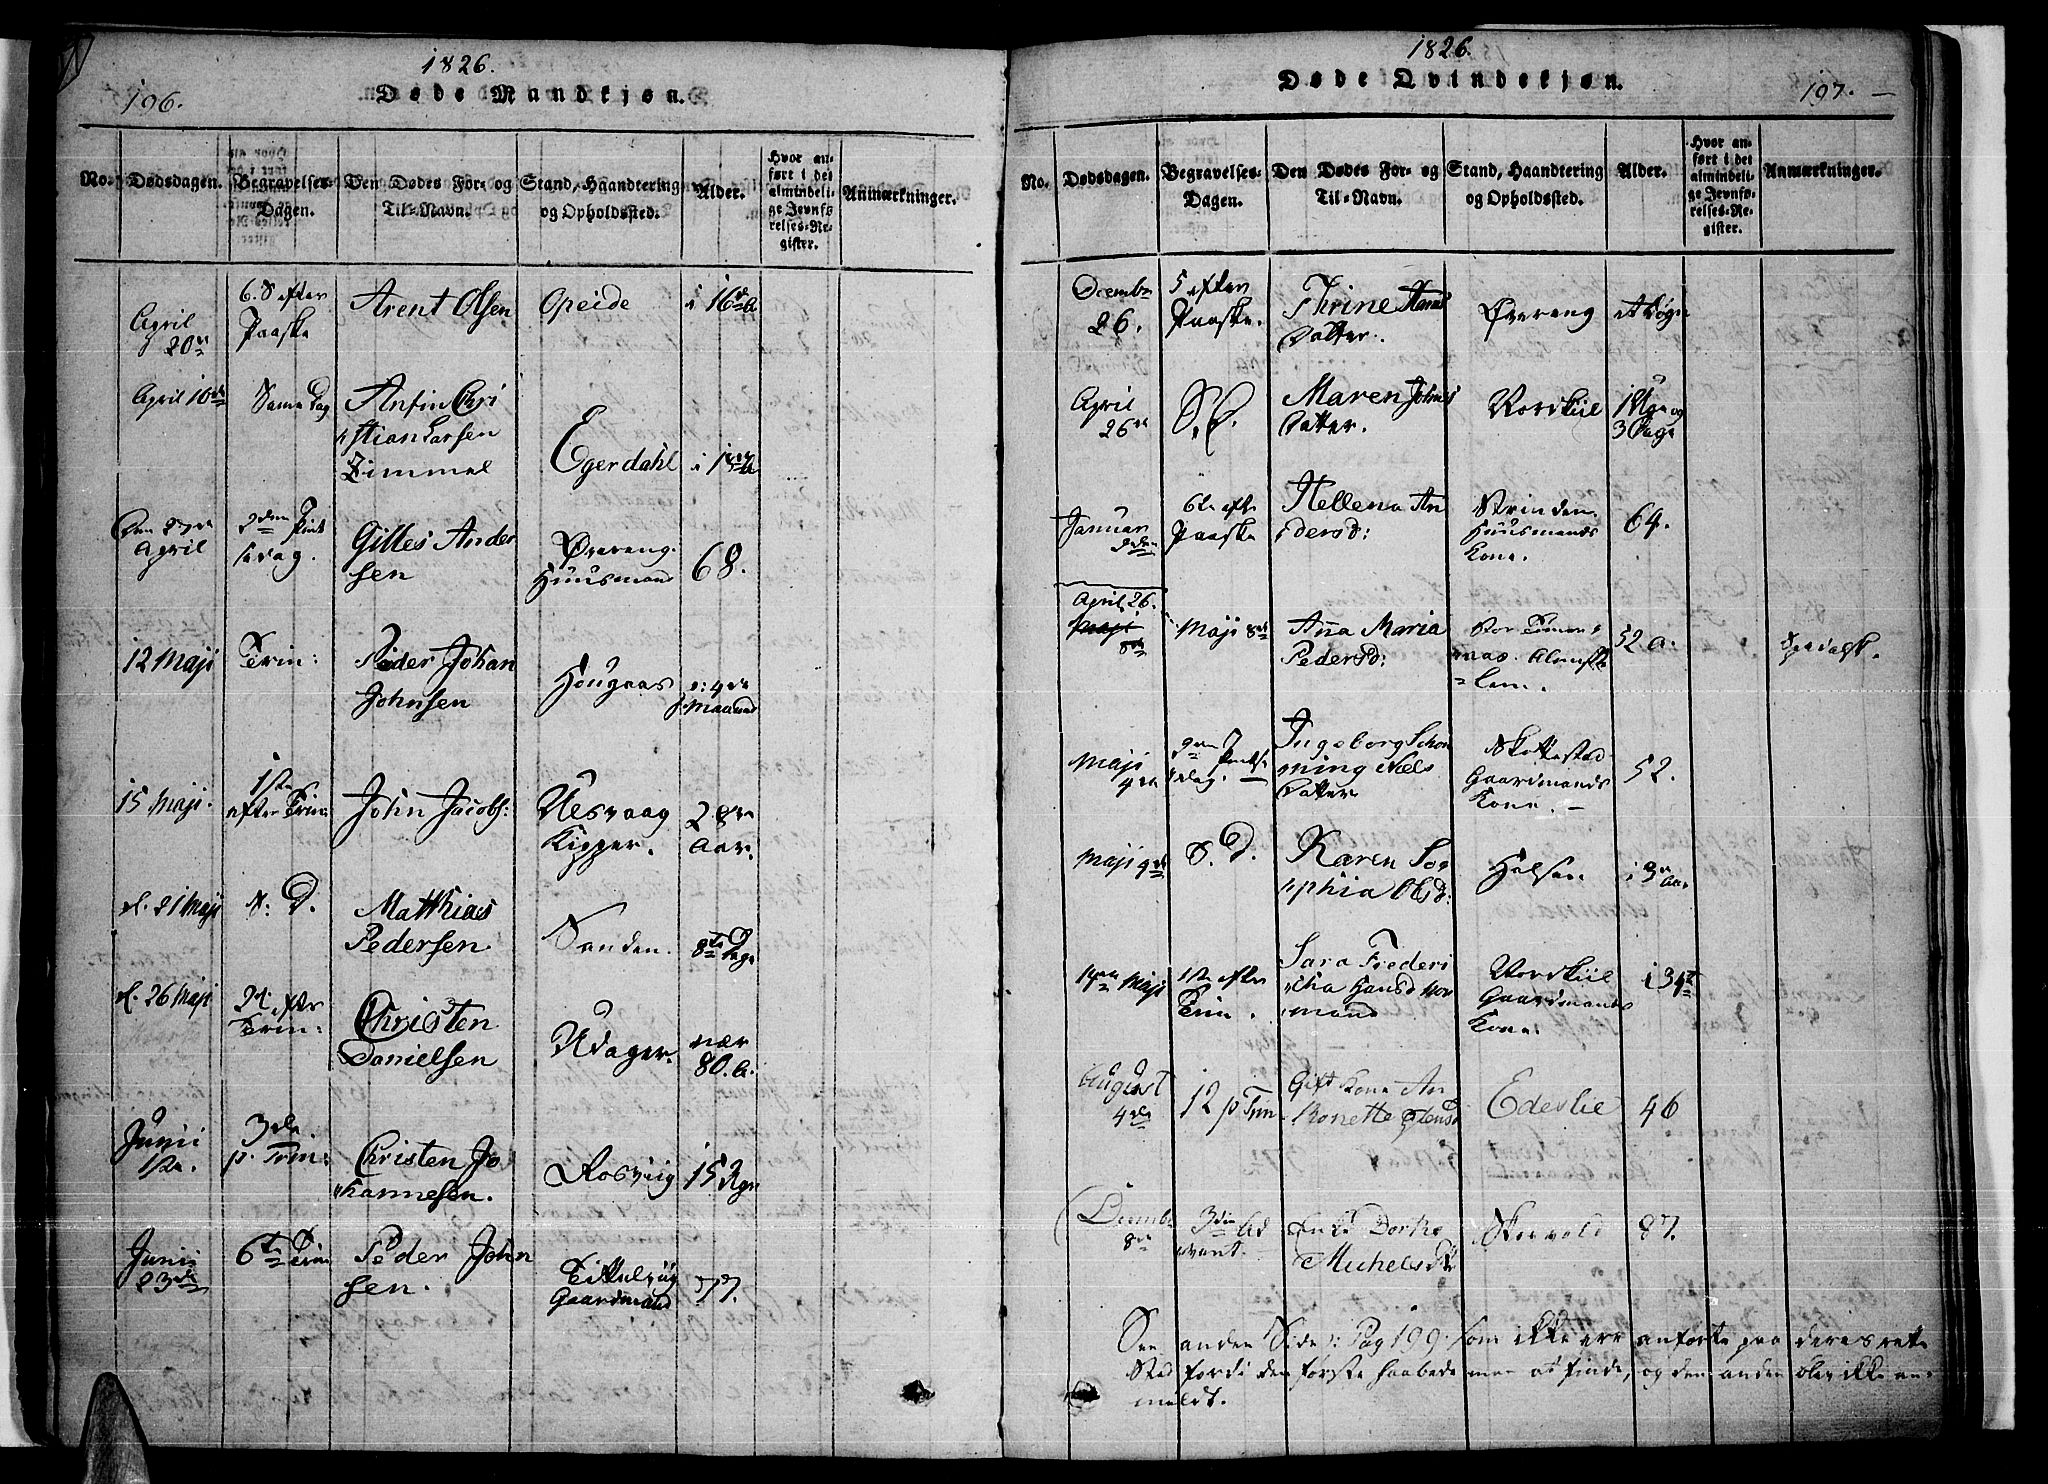 196.
1826.
Døde Mandkjøn.
No.
Dødsdagen.
Begravelses-
Dagen.
Den Dødes For- og
Til-Navn.
Stand, Haandtering
og Opholdssted.
Alder.
Hvor an-
ført i det
almindeli-
ge Jevnfø-
relses-Re-
gister.
Anmærkninger.
April
20de
6. S efter
Paaske
Arent Olsen
Opeide
i 16de
April 10de
Same Dag
Anfin Chri
stian Larsen
Zimmel
Egerdahl
Den 27de
April
2den
dag.
Gilles Ander
sen
Øvereng
Huusmand
68.
12 Maji
Trin:
Peder Johan
Johnsen
Hougaas
4de
Maaned
15 Maji.
1ste
efter Trin:
John Jacobs:
Nesvaag
Kipper.
28de
Aar.
d. 21 Maji
S: D.
Matthias
Pedersen
Sanden.
8te Dage
d. 26 Maji
2d efter
Trin:
Christen
Danielsen
Udager.
nær
80. A.
Junii
1ste.
3die
p. Trin:
Christen Jo
hannesen.
Rosviig
15 Uger
Junii
23de
6te Trin
Peder John
sen.
Gaardmand
77.
1826.
Døde Qvindekjøn.
197.
No.
Dødsdagen.
Begravelses-
Dagen.
Den Dødes For- og
Til-Navn.
Stand, Haandtering
og Opholdssted.
Alder.
Hvor an-
ført i det
almindeli-
ge Jevnfø-
relses-Re-
gister.
Anmærkninger.
Decembr
26.
5 efter
Paaske.
Thrine Hans
Datter.
Øvereng
et Døgn
April
26de
S. D.
Maren Johns
Datter.
Nordskiil
1 Uge og
3 Dage
Januar
2den
6te eft.
Paaske
Hellena An
dersd:
Strinden
Huusmands
Kone.
64.
April 26.
Maji
8de
Maji 8de
Anna Maria
Pedersd:
52 a:
Spedalsk.
Maji
4de
2den
dag.
Ingeborg Schon
ning Niels
Datter
Skottestad
Gaardmands
Kone.
52.
Maji 9de
S. D.
Karen So
phia Olsd:
Helsen
i 3de Aar
14de Maji
1ste efter
Trin.
Sara Frederi
cha Hansd Nor
mand
Nordskiil
Gaardmands
Kone.
i 31te
August
4de
12 p Trin
Gift Kone An
Edeslie
46
Decembr
8de
3die Ad
vent.
Dorthe
Michelsd
Skorvold
87.
See anden Side: Pag 199. som ikke ere anførte paa deres rette
Sted fordi den første havde man at finde, og den anden blev ikke an-
meldt.